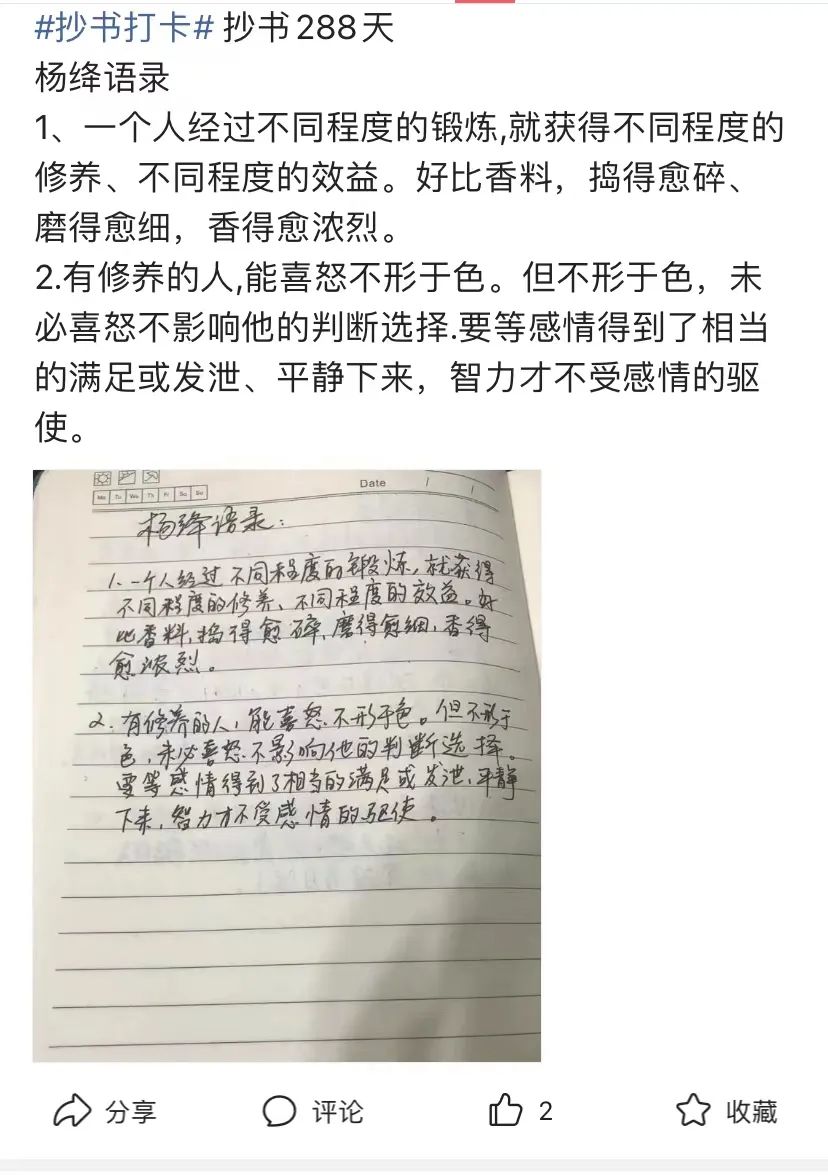 #抄书打卡# 抄书288天
杨绛语录
1、一个人经过不同程度的锻炼,就获得不同程度的
修养、不同程度的效益。好比香料，捣得愈碎、
磨得愈细，香得愈浓烈。
2.有修养的人,能喜怒不形于色。但不形于色，未
必喜怒不影响他的判断选择.要等感情得到了相当
的满足或发泄、平静下来，智力才不受感情的驱
使。
Date / /
Mo Tu We Th Fr Sa Su
杨绛语录：
1、一个人经过不同程度的锻炼，就获得
不同程度的修养、不同程度的效益。好
比香料，捣得愈碎，磨得愈细，香得
愈浓烈。
2.有修养的人，能喜怒不形于色。但不形于
色，未必喜怒不影响他的判断选择。
要等感情得到了相当的满足或发泄、平静
下来，智力才不受感情的驱使。
分享 评论 2 收藏